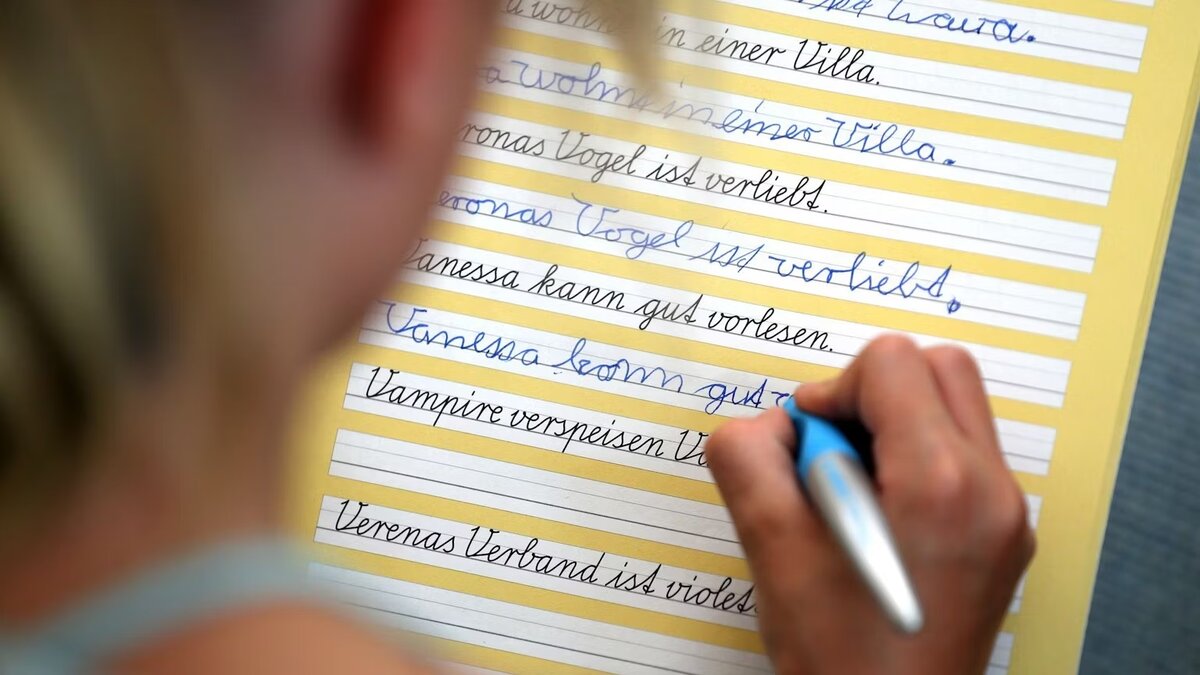 Laura.
wohnt in einer Villa.
wohnt in einer Villa.
ronas Vogel ist verliebt.
eronas Vogel ist verliebt.
Vanessa kann gut vorlesen.
Vanessa kann gut
Vampire verspeisen
Verenas Verband ist violet